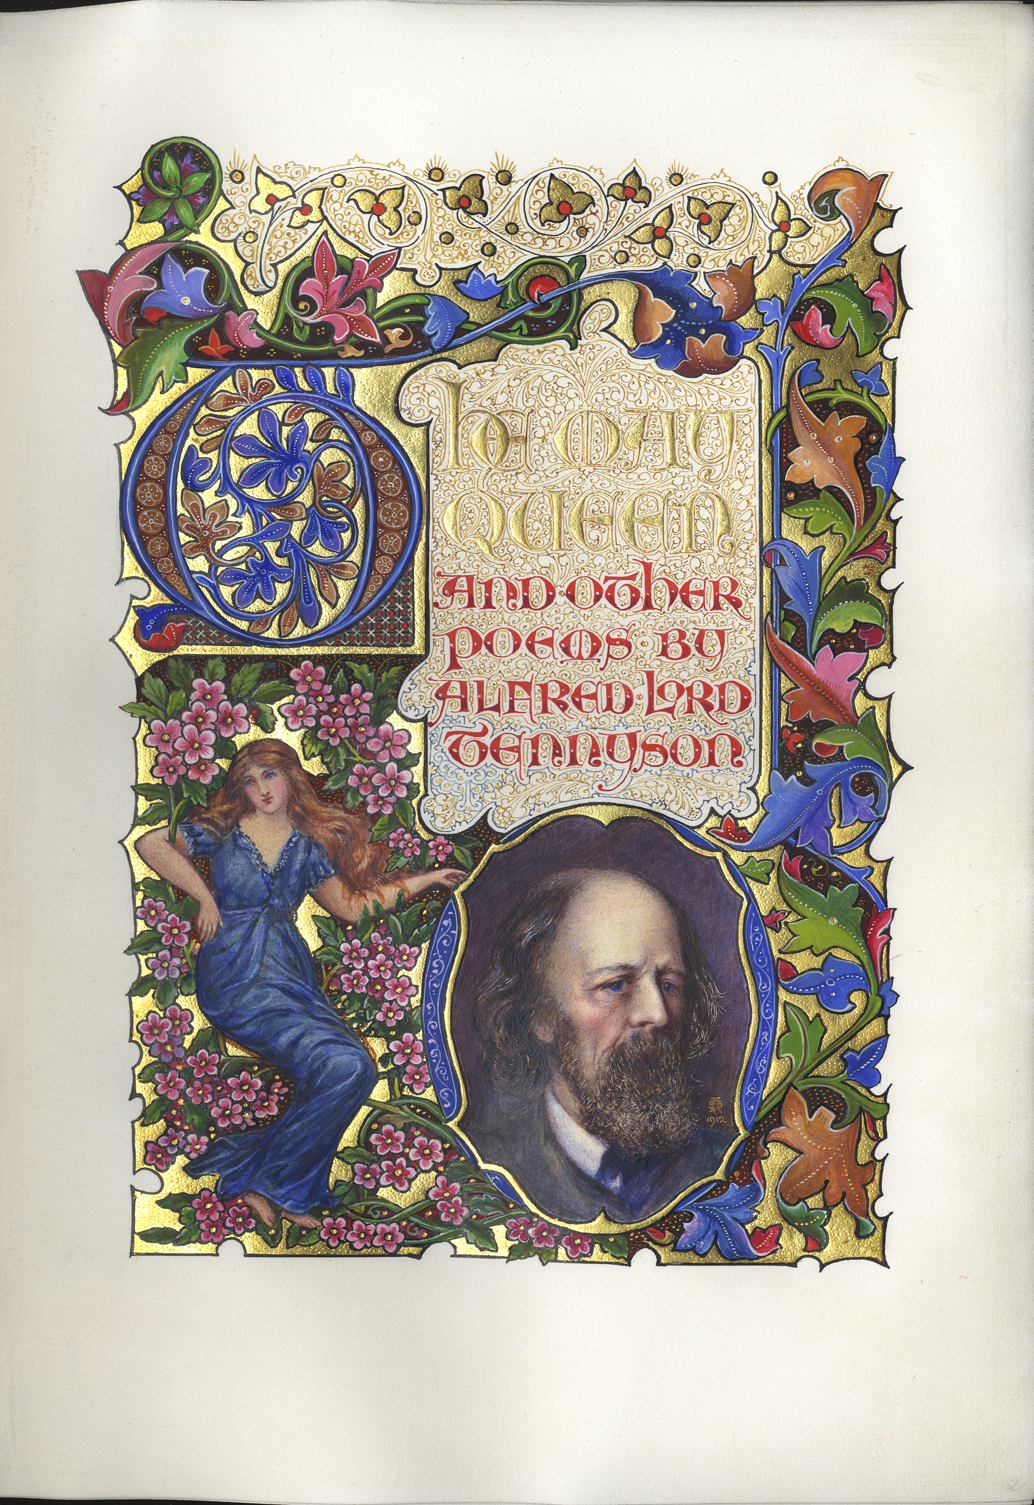 The May
Queen
and·other
poems·by
Alfred·Lord
Tennyson
1912